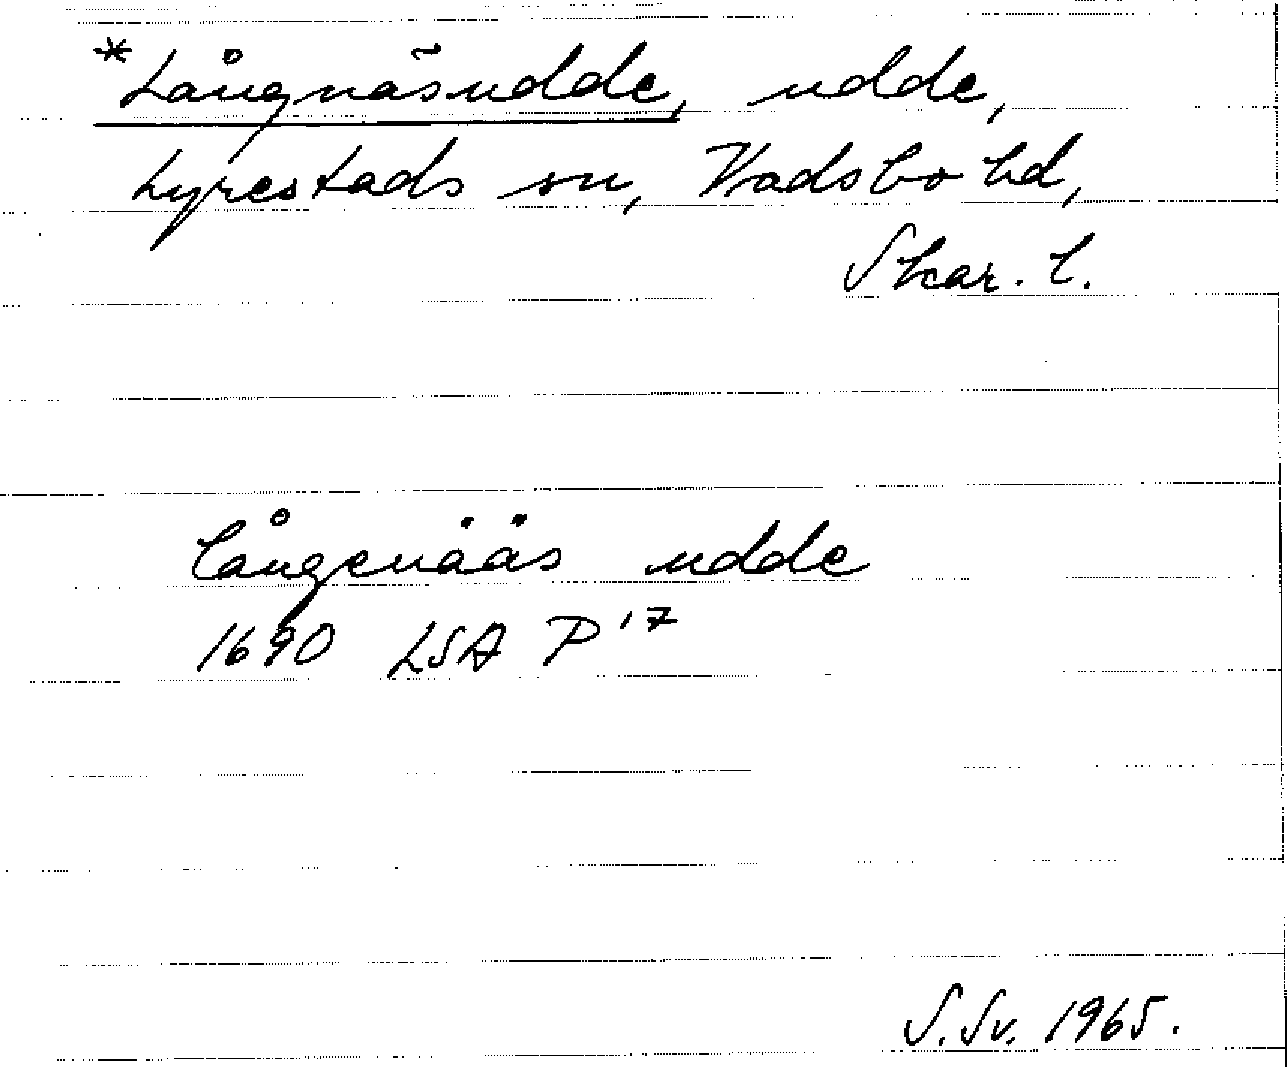 *Långnäsudde, udde,
Lyrestads sn, Vadsbo hd,
Skar. l.
långenääs udde
1690 LSA P 17
S.Sv. 1965.